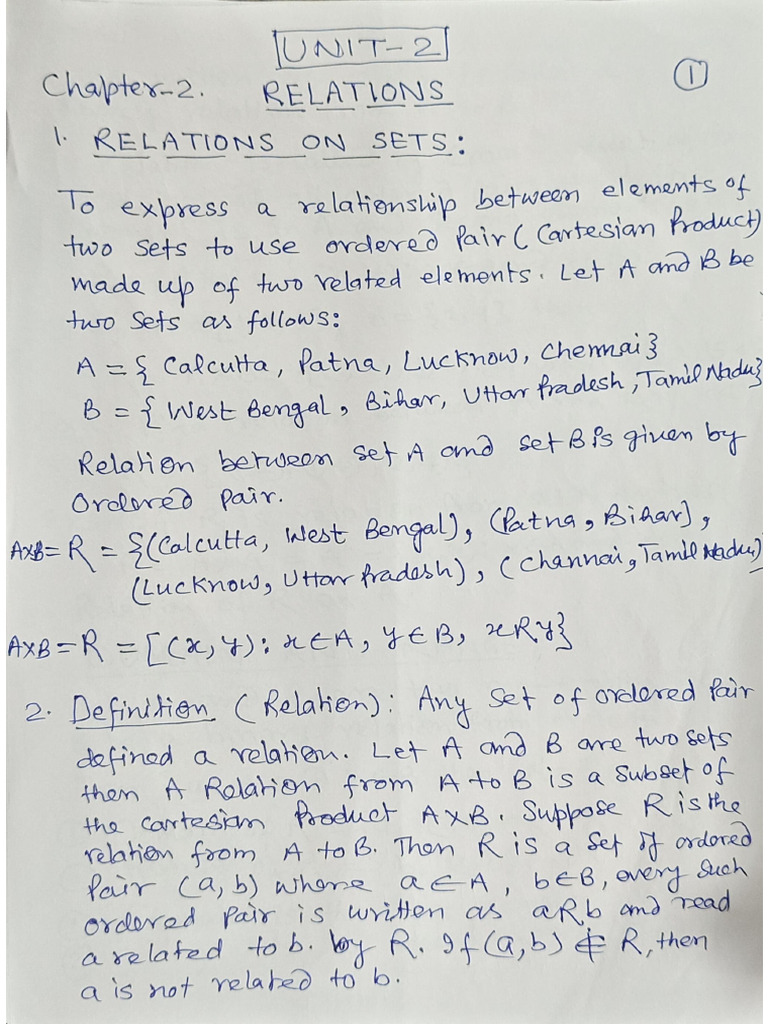 UNIT-2
Chapter-2. RELATIONS ①
1. RELATIONS ON SETS:
To express a relationship between elements of
two sets to use ordered Pair (Cartesian Product)
made up of two related elements. Let A and B be
two sets as follows:
A = { Calcutta, Patna, Lucknow, Chennai}
B = { West Bengal, Bihar, Uttar Pradesh, Tamil Nadu}
Relation between set A and set B is given by
Ordered pair.
AxB = R = {(Calcutta, West Bengal), (Patna, Bihar),
(Lucknow, Uttar Pradesh), (Channai, Tamil Nadu)
AxB = R = [(x, y): x ∈ A, y ∈ B, xRy}
2. Definition (Relation): Any set of ordered Pair
defined a relation. Let A and B are two sets
then A Relation from A to B is a subset of
the cartesian Product AxB. Suppose R is the
relation from A to B. Then R is a set of ordered
Pair (a, b) where a ∈ A, b ∈ B, every such
ordered pair is written as aRb and read
a related to b. by R. If (a, b) ∉ R, then
a is not related to b.